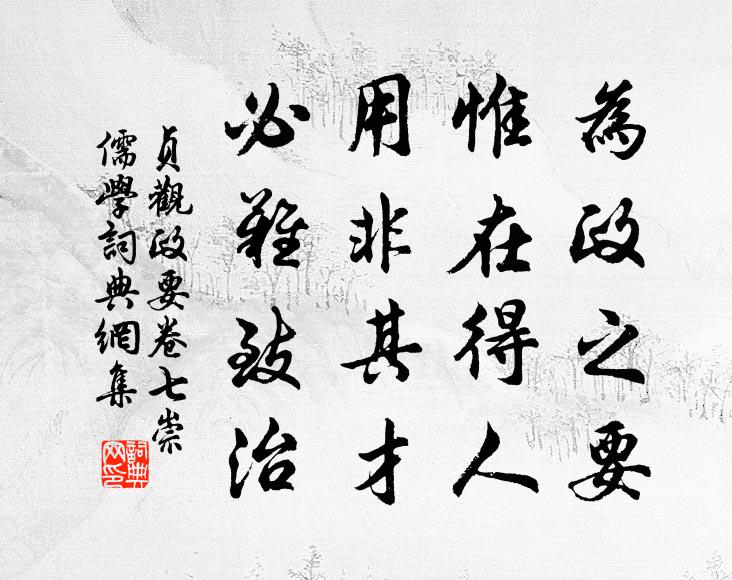 為政之要
惟在得人
用非其才
必難致治
貞觀政要卷七崇
儒學詞典網集
詞典
网印